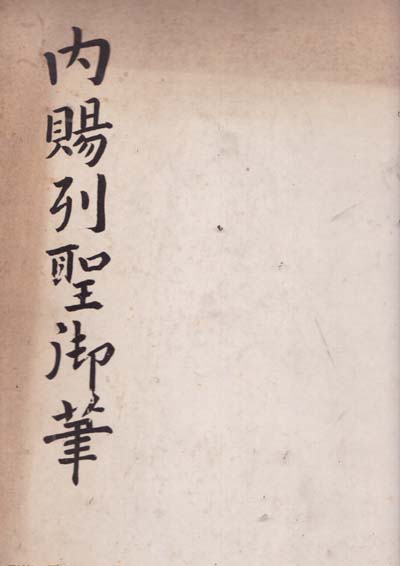 內賜列聖御筆